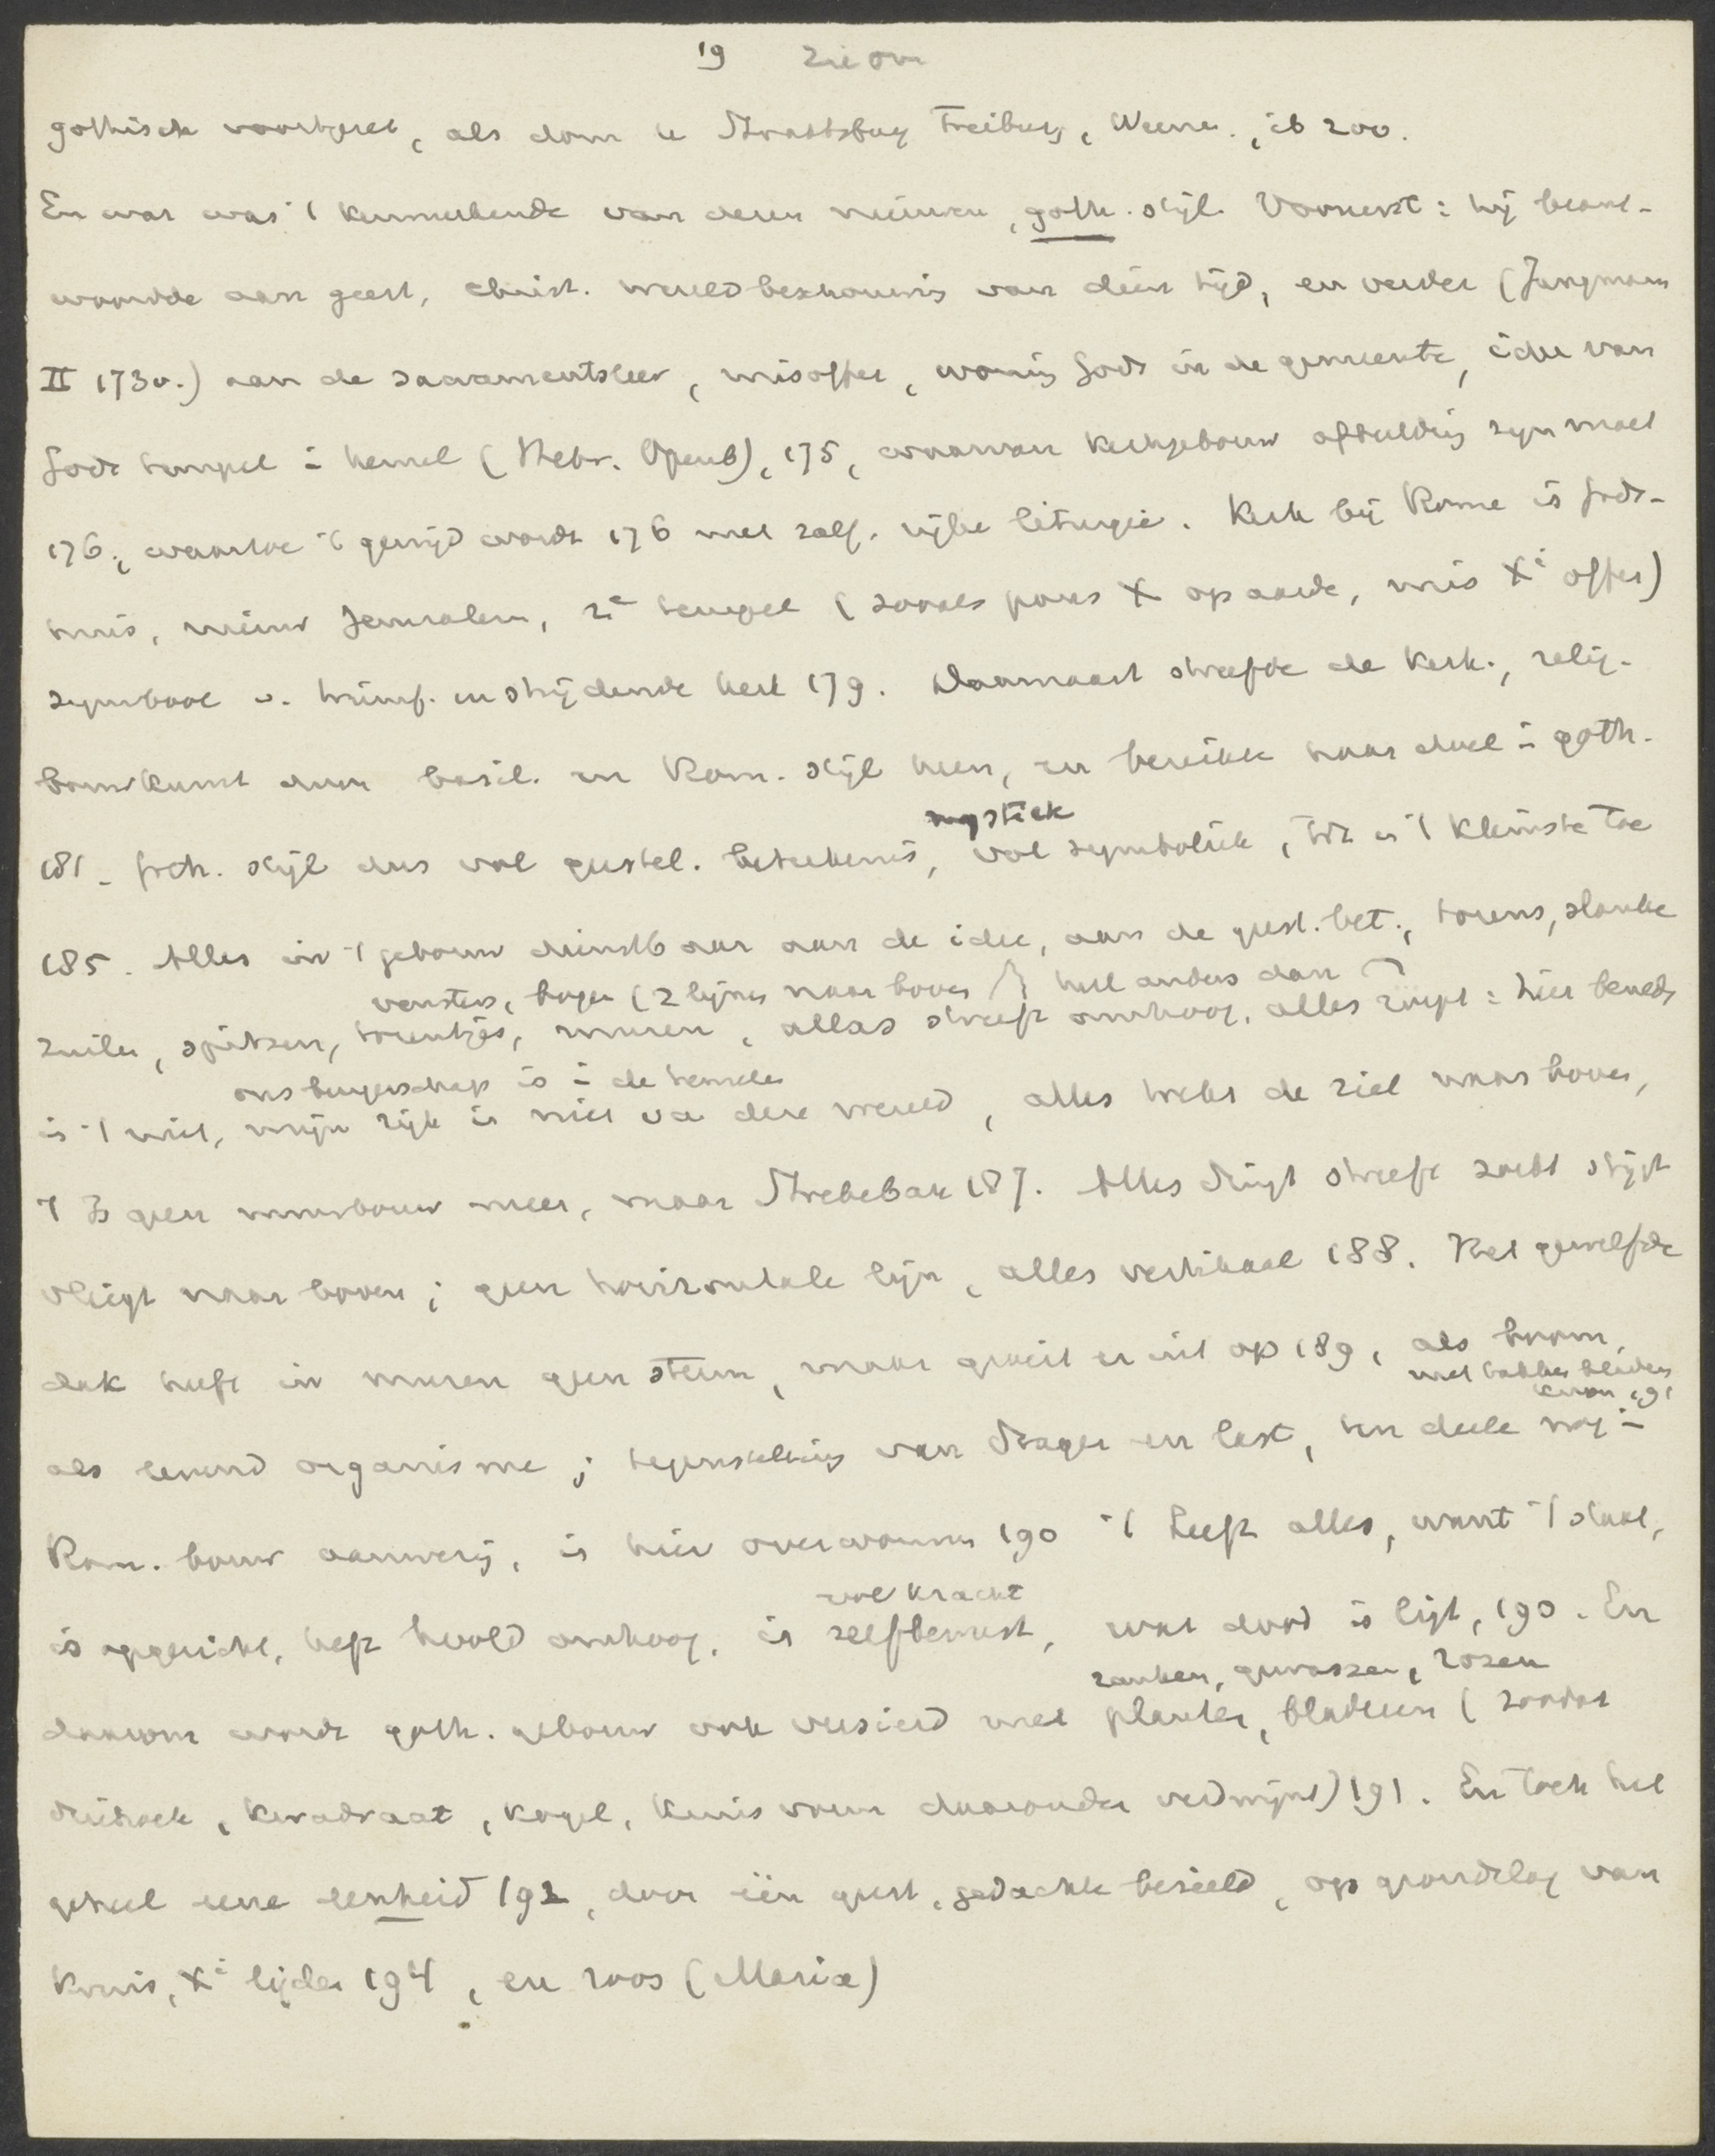 19 zie om
gothisch voortzet, als dom te Straatsburg Freiburg, Weene., ib 200.
En wat was 't kenmerkende van dezen nieuwen, goth. stijl. Vooreerst: hij beant-
woordde aan geest, christ. wereldbeschouwing van dien tijd, en verder (Jungmann
II 173v.) aan de sacramentsleer, misoffer, woning Gods in de gemeente, idee van
Gods tempel i hemel (Hebr. Openb), 175, waarvan kerkgebouw afbeelding zijn moet
176, waartoe 't gewijd wordt 176 met zalf. rijke liturgie. Kerk bij Rome is Gods-
huis, nieuw Jeruzalem, 2e tempel (zooals paus X op aarde, mis Xi offer)
symbool v. triumf. en strijdende kerk 179. Daarnaast streefde de kerk., relig.
bouwkunst door basil. en Rom. stijl heen, en bereikte haar doel i goth.
181 - Goth. stijl dus vol geestel. beteekenis, mystiek vol symboliek, tot in 't kleinste toe
185. Alles in 't gebouw dienstbaar aan de idee, aan de geest. bet., torens, slanke
vensters, bogen (2 lijnen naar boven heel anders dan
zuilen, spitsen, torentjes, muren, alles streeft omhoog, alles roept: hier beneden
ons burgerschap is i de hemelen
is 't niet, mijn rijk is niet va deze wereld, alles trekt de ziel naar boven,
't Is geen muurbouw meer, maar Strebebau 187. Alles dringt streeft zoekt stijgt
vliegt naar boven; geen horizontale lijn, alles vertikaal 188. Het gewelfde
dak heeft in muren geen steun, maar groeit er uit op 189, als boom,
met takken bladeren
kroon 191
als levend organisme; tegenstelling van drager en last, ten deele nog i
Rom. bouw aanwezig, is hier overwonnen 190 't Leeft alles, want 't staat,
vol kracht
is opgericht, heft hoofd omhoog, is zelfbewust, wat dood is ligt, 190. En
ranken, gewassen, rozen
daarom wordt goth. gebouw ook versierd met planten, bladeren (zoodat
driehoek, kwadraat, kogel, kruisvorm daaronder verdwijnt) 191. En toch het
geheel eene eenheid 192, door één geest. gedachte bezield, op grondslag van
kruis, Xi lijden 194, en roos (Maria)